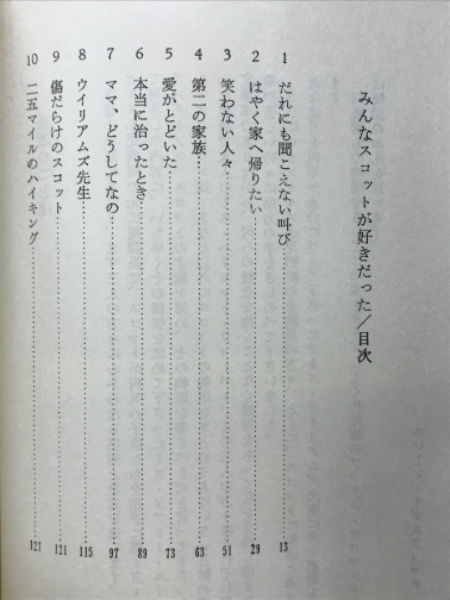 みんなスコットが好きだった／目次
1 だれにも聞こえない叫び……………………13
2 はやく家へ帰りたい……………………29
3 笑わない人々……………………51
4 第二の家族……………………63
5 愛がとどいた……………………73
6 本当に治ったとき……………………89
7 ママ、どうしてなの……………………97
8 ウイリアムズ先生……………………115
9 傷だらけのスコット……………………121
10 二五マイルのハイキング……………………127